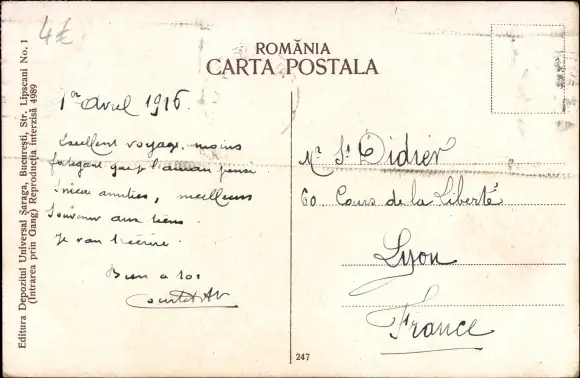 4£
ROMÂNIA
CARTA POSTALA
Editura Depozitul Universal Șaraga, București, Str. Lipscani No. 1
(Intrarea prin Gang) Reproducția interzisă 4989
1er Avril 1916.
Excellent voyage, moins
fatigant que j l'aurais pensé
amitiés, meilleurs
Souvenir aux tiens.
Je
Bien a toi
Mr St Didier
60 Cours de la Liberté
Lyon
France
247